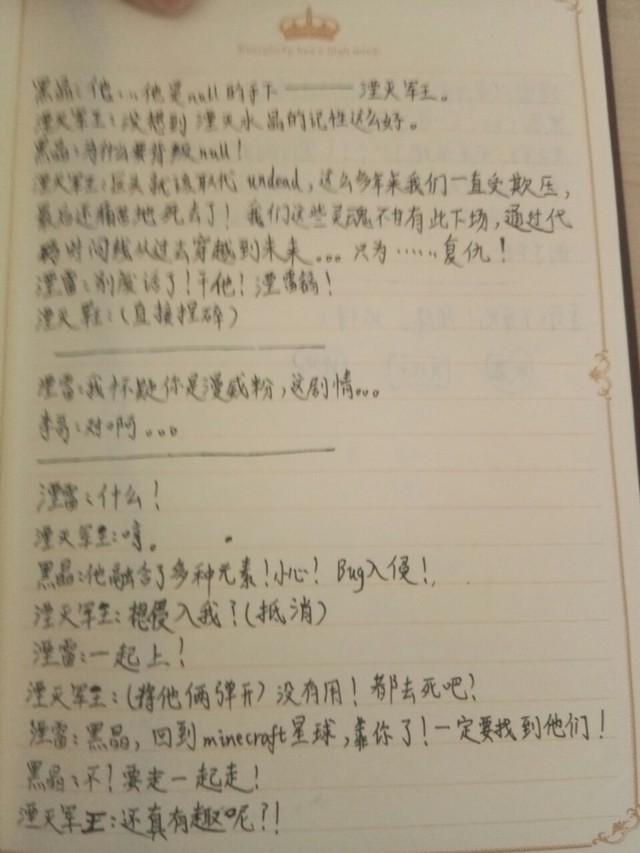 黑晶：他...他是null的手下——湮灭军王。
湮灭军王：没想到湮灭水晶的记性这么好。
黑晶：为什么要背叛null！
湮灭军王：巨头就该取代undead，这么多年来我们一直受欺压，
最后还痛苦地死去了！我们这些灵魂不甘有此下场，通过代
码时间线从过去穿越到未来...只为……复仇！
湮雷：别废话了！干他！湮雷鎬！
湮灭军王：（直接捏碎）
湮雷：我怀疑你是漫威粉，这剧情...
李哥：对啊...
湮雷：什么！
湮灭军王：哼。
黑晶：他融合了多种元素！小心！Bug入侵！
湮灭军王：想侵入我？（抵消）
湮雷：一起上！
湮灭军王：（将他俩弹开）没有用！都去死吧？
湮雷：黑晶，回到minecraft星球，靠你了！一定要找到他们！
黑晶：不！要走一起走！
湮灭军王：还真有趣呢？！